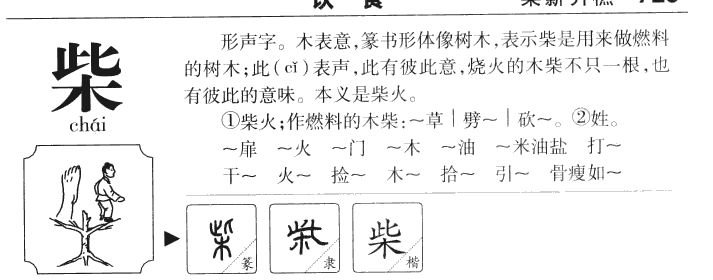 饮食
柴
chái
形声字。木表意,篆书形体像树木,表示柴是用来做燃料
的树木;此(cǐ)表声,此有彼此意,烧火的木柴不只一根,也
有彼此的意味。本义是柴火。
①柴火;作燃料的木柴:～草｜劈～｜砍～。②姓。
～扉 ～火 ～门 ～木 ～油 ～米油盐 打～
干～ 火～ 捡～ 木～ 拾～ 引～ 骨瘦如～
柴 篆
柴 隶
柴 楷